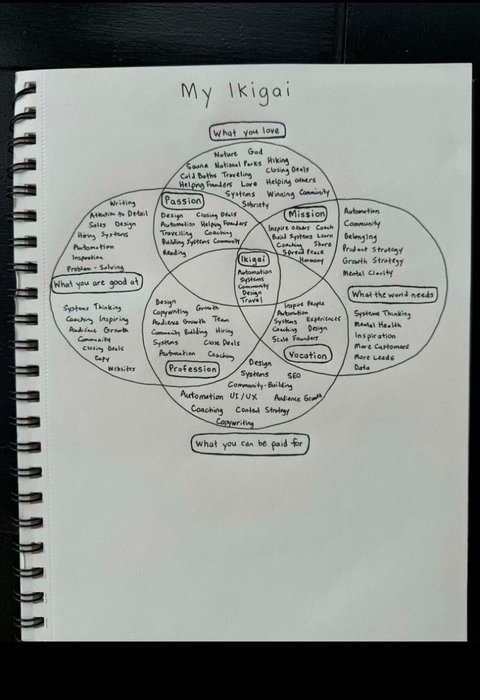 My Ikigai
What you love
Nature God
Sauna National Parks Hiking
Cold Baths Traveling Closing Deals
Helping Founders Love Helping others
Systems Winning Community
Sobriety
Passion
Design Closing Deals
Automation Helping Founders
Travelling Coaching
Building Systems Community
Reading
Mission
Inspire others Coach
Build Systems Learn
Coaching Share
Spread Peace
Harmony
Writing
Attention to Detail
Sales Design
Hiring Systems
Automation
Inspiration
Problem-Solving
What you are good at
Systems Thinking
Coaching Inspiring
Audience Growth
Community
Closing Deals
Copy
Websites
Ikigai
Automation
Systems
Community
Design
Travel
Automation
Community
Belonging
Product Strategy
Growth Strategy
Mental Clarity
What the world needs
Systems Thinking
Mental Health
Inspiration
More Customers
More Leads
Data
Design
Copywriting Growth
Audience Growth Team
Community Building Hiring
Systems Close Deals
Automation Coaching
Profession
Inspire People
Automation
Systems Experiences
Coaching Design
Scale Founders
Vocation
Design
Systems SEO
Community-Building
Automation UI/UX Audience Growth
Coaching Content Strategy
Copywriting
What you can be paid for